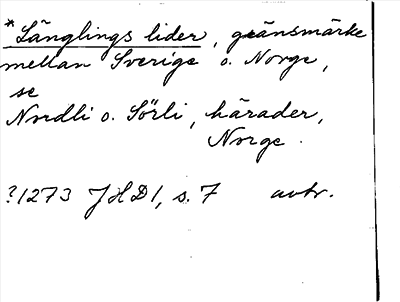 *Länglings lider, gränsmärke
mellan Sverige o. Norge,
se
Nordli o. Sörli, härader,
Norge.
?1273 JHD 1, s. 7 avtr.